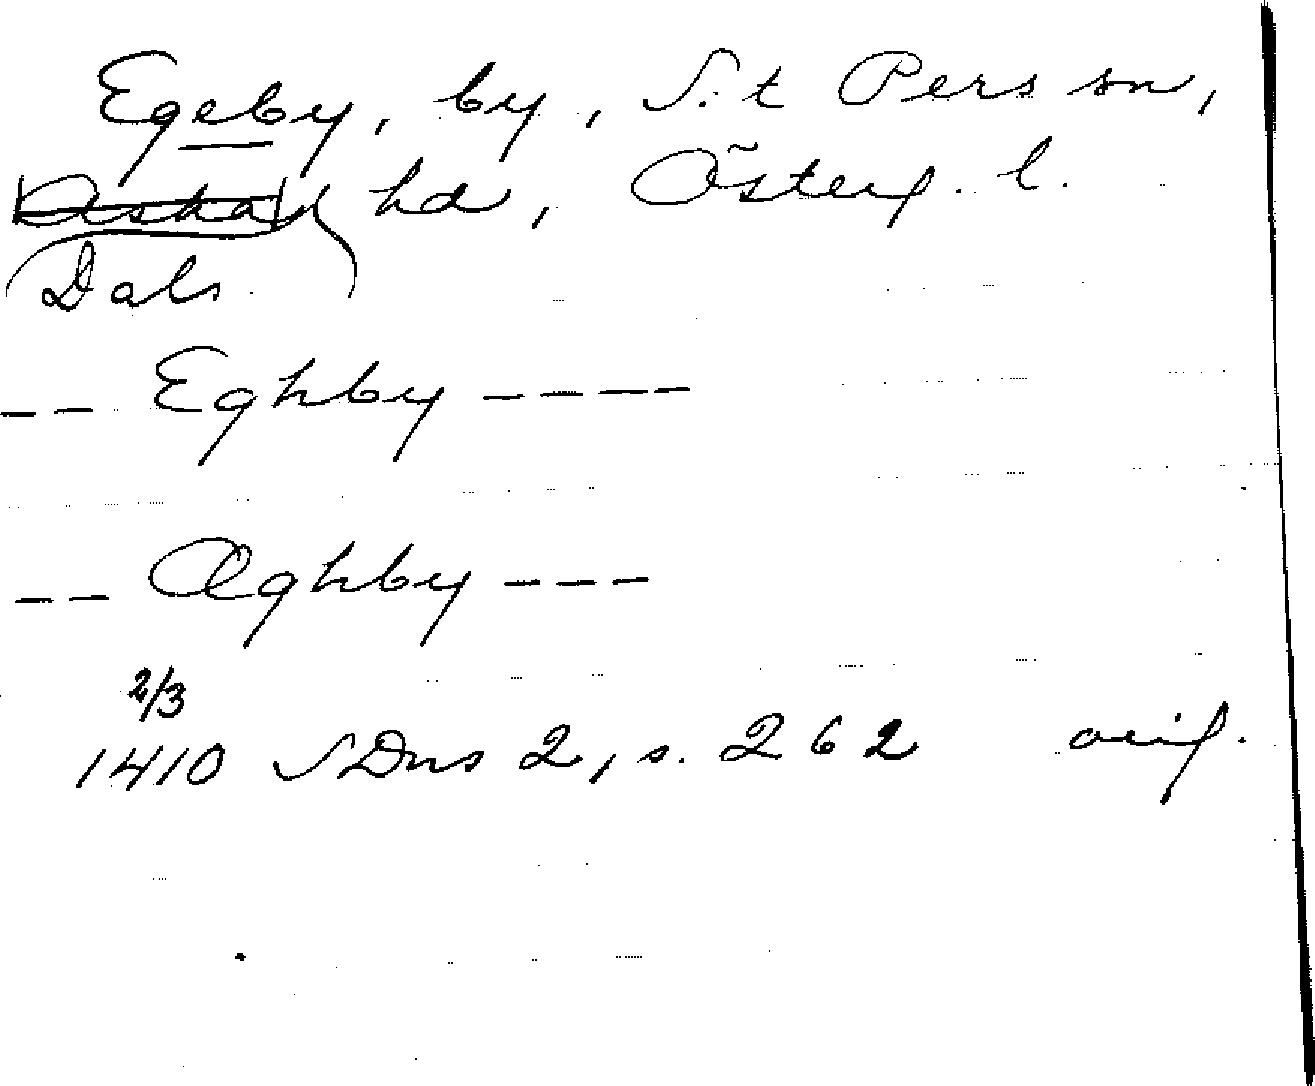 Egeby, by, S:t Pers sn,
Aska hd, Österg. l.
Dals
-- Eghby ----
-- Æghby ---
2/3
1410 SDns 2, s. 262 orig.